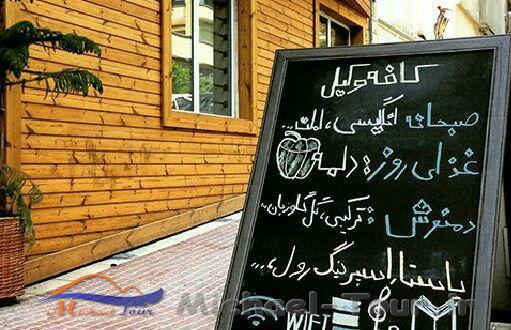 کافه وکیل
صبحانه انگلیسی، املت...
غذای روز: دلمه
دمنوش: ترکیبی، گل گاوزبان...
پاستا، اسپرینگ رول،...
WIFI
Michael Tour
Michael-Tour.ir